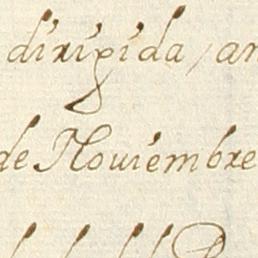 dirigida, an
de Nouiembre